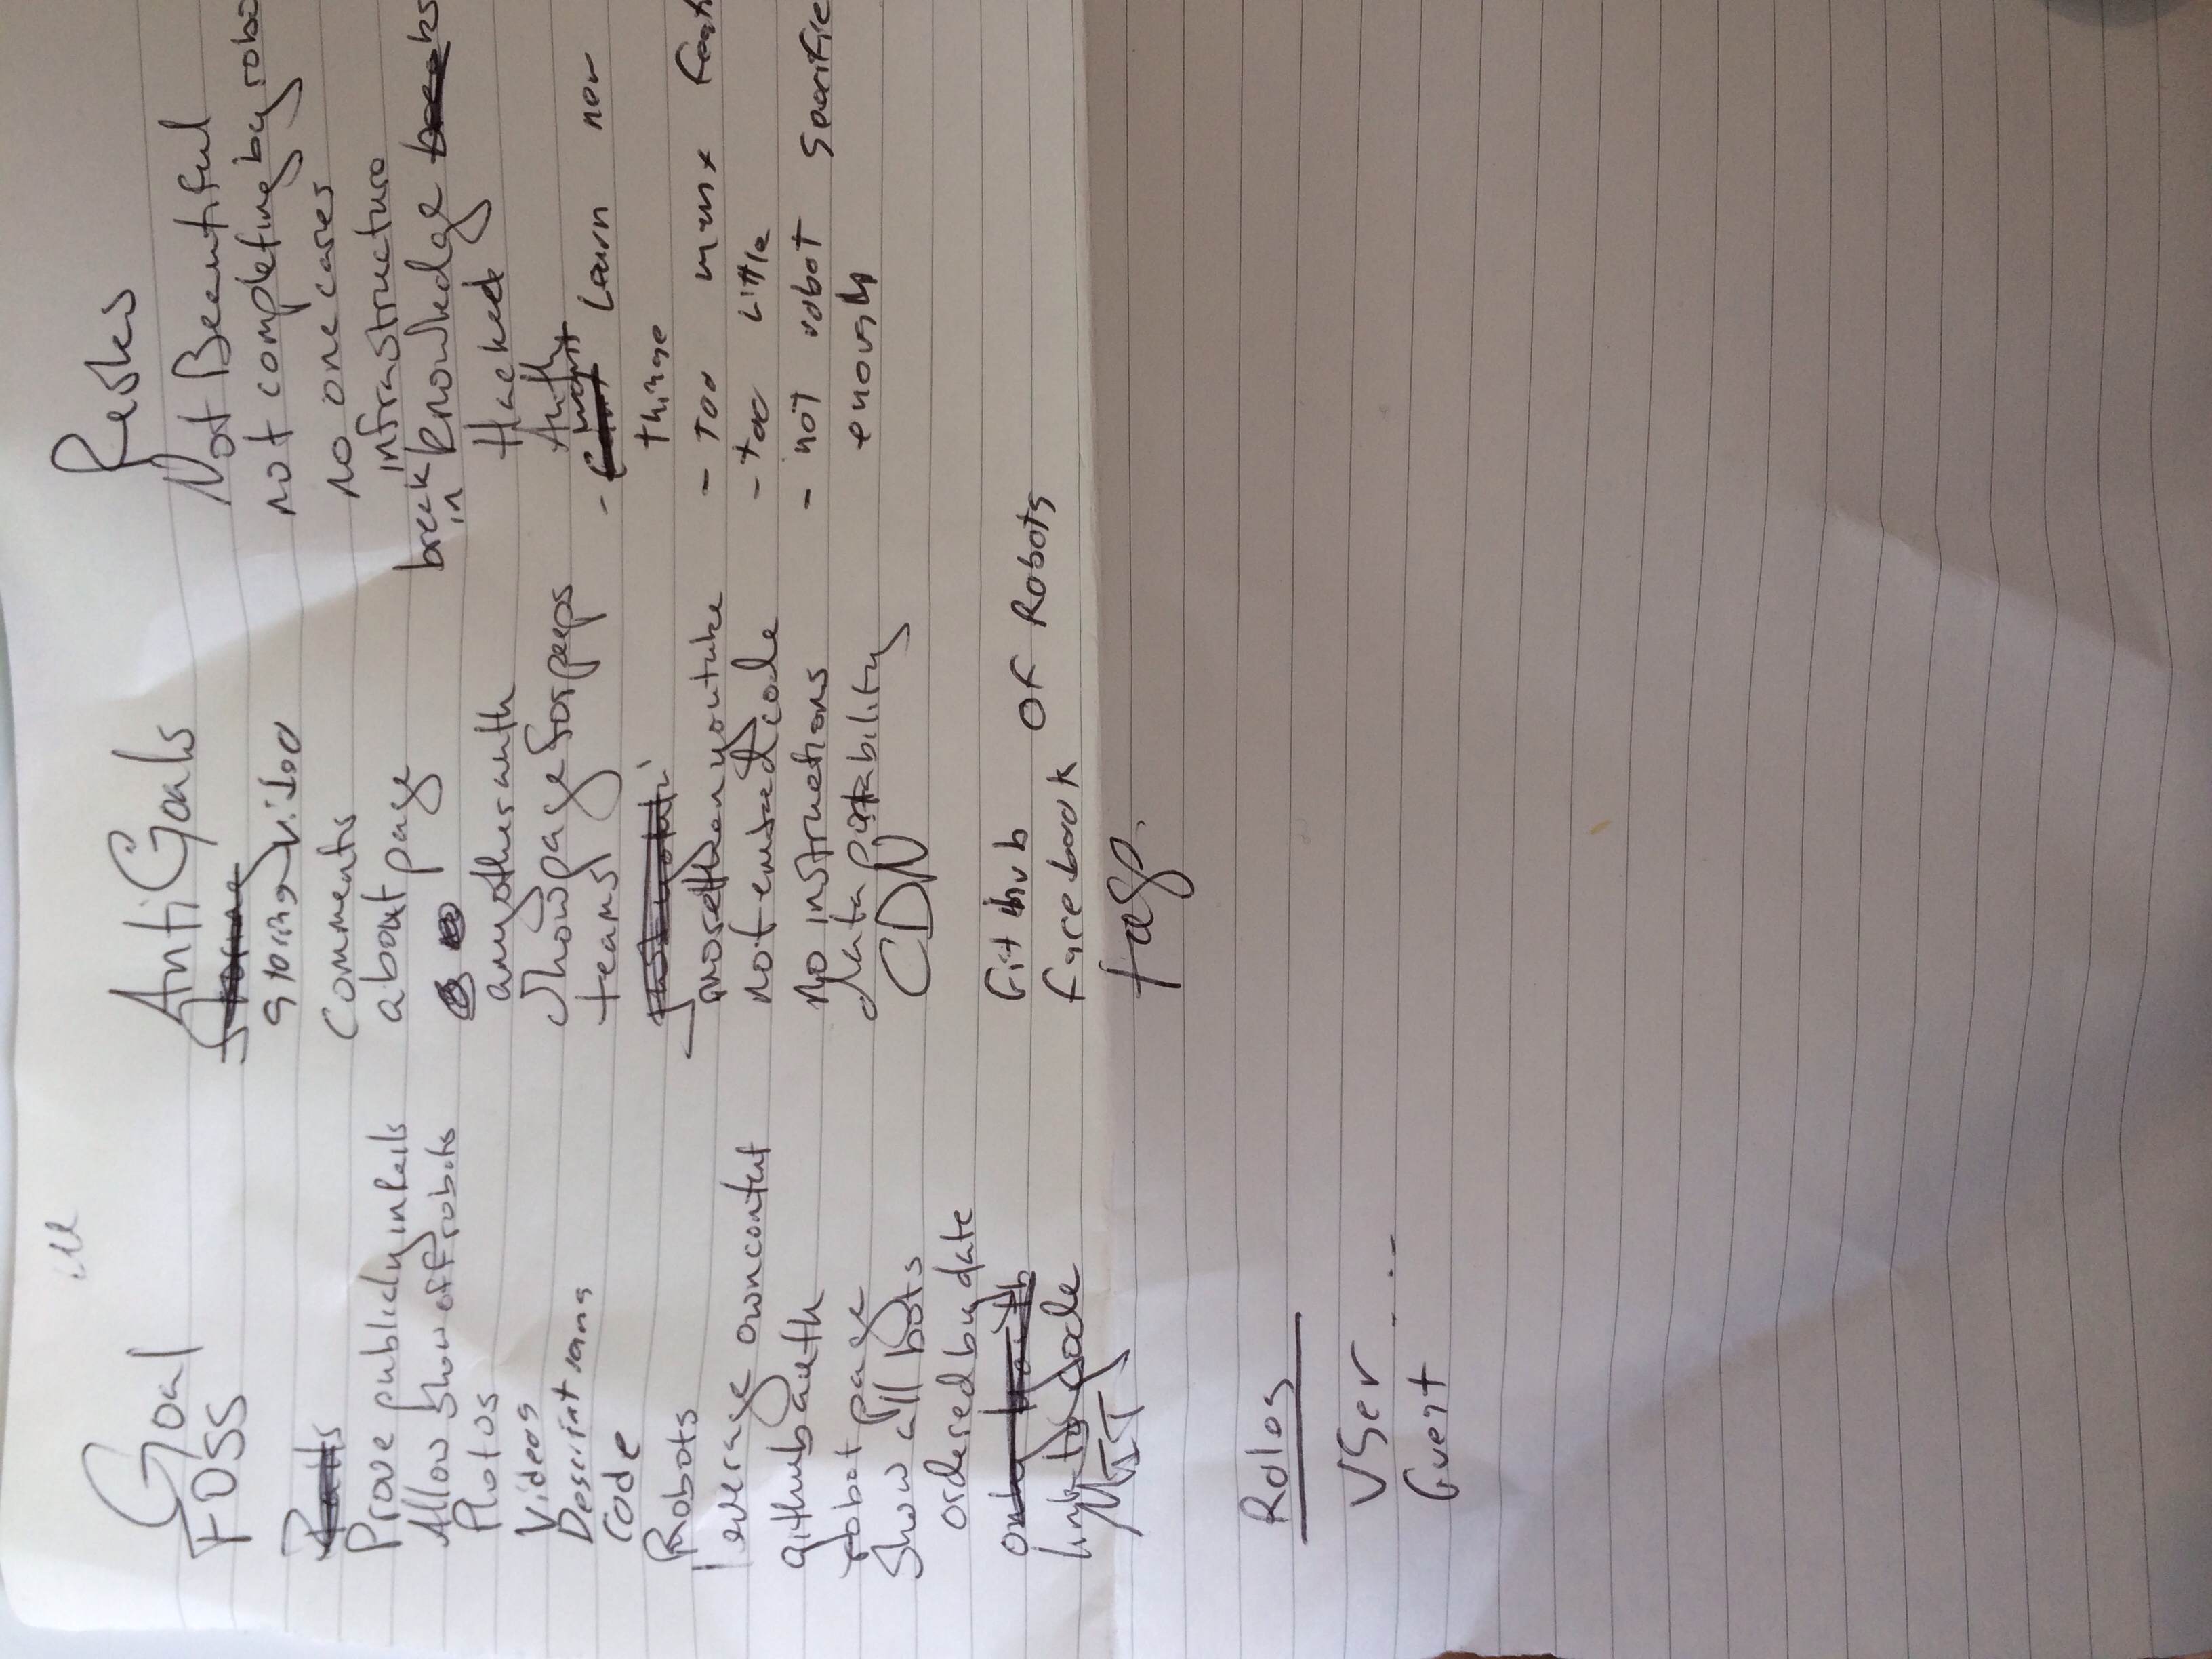 Goal
FOSS
Prove publicly in Rails
Allow show off robots
Photos
Videos
Descriptions
Code
Robots
leverage own content
github auth
robot page
Show all bots
ordered by date
only
link to code
MIT
Roles
User ...
Guest
Anti Goals
Storing
storing video
Comments
about page
any other auth
Show page for peeps
teams
more then youtube
not embed code
no instructions
data portability
CDN
Github
Facebook
Of Robots
tags
Risks
Not Beautiful
not completing by robo
no one cares
infrastructure
break in knowledge breaks
Hacked
Auth
- want Learn new
things
- Too many Feat
- too Little
- not robot Specific
enough